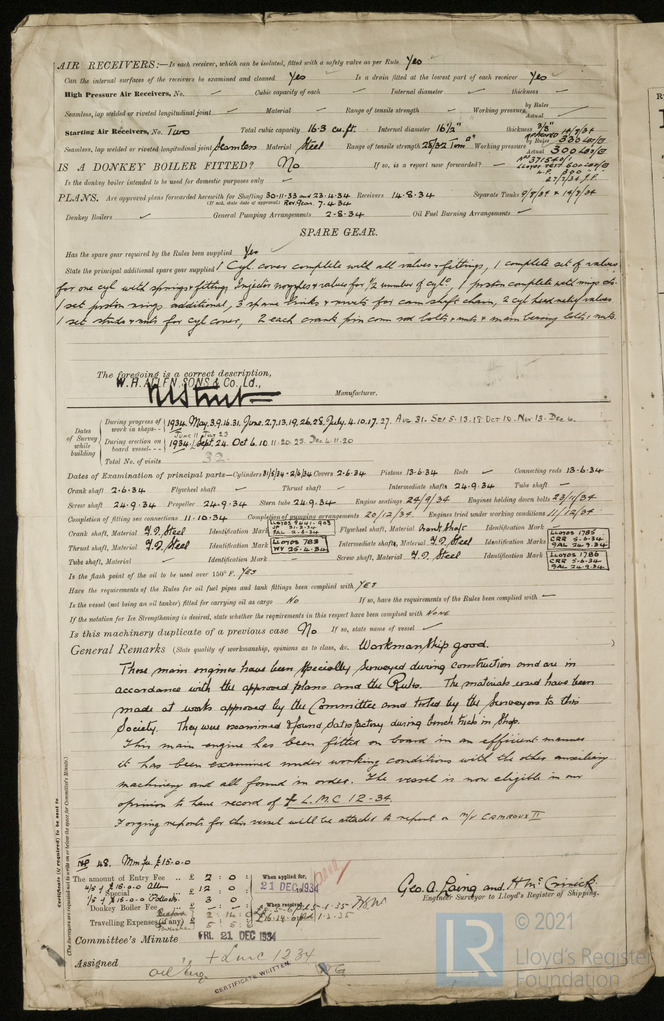 AIR RECEIVERS:—Is each receiver, which can be isolated, fitted with a safety valve as per Rule Yes
Can the internal surfaces of the receivers be examined and cleaned Yes Is a drain fitted at the lowest part of each receiver Yes
High Pressure Air Receivers, No. Cubic capacity of each Internal diameter thickness
Seamless, lap welded or riveted longitudinal joint Material Range of tensile strength Working pressure by Rules Actual
Starting Air Receivers, No. Two Total cubic capacity 16.3 cu.ft. Internal diameter 16½" thickness 3/8"
Seamless, lap welded or riveted longitudinal joint Seamless Material Steel Range of tensile strength 28/32 Tons Working pressure by Rules 330 Actual 300
IS A DONKEY BOILER FITTED? No If so, is a report now forwarded?
Is the donkey boiler intended to be used for domestic purposes only
PLANS. Are approved plans forwarded herewith for Shafting 30-11-33 and 23-4-34 Receivers 14-8-34 Separate Tanks
(If not, state date of approval) 7-4-34
Donkey Boilers General Pumping Arrangements 2-8-34 Oil Fuel Burning Arrangements
SPARE GEAR.
Has the spare gear required by the Rules been supplied Yes
State the principal additional spare gear supplied 1 Cyl. cover complete with all valves & fittings, 1 complete set of valves
for one cyl with springs & fittings, Injector nozzles & valves for 1/2 number of cyls, 1 piston complete with rings etc.
1 set piston rings additional, 3 spare links & rivets for cam shaft chain, 2 cyl head relief valves
1 set studs & nuts for cyl cover, 2 each crank pin conn rod bolts & nuts & main bearing bolts & nuts.
The foregoing is a correct description,
W. H. ALLEN, SONS & Co. Ld.,
Manufacturer.
Dates of Survey while building
During progress of work in shops-- 1934. May, 3.9.16.31, June, 2.7.13.19.26.28, July, 4.10.17.27. Aug 31. Sep 5.13.18 Oct 10. Nov 13. Dec 4.
During erection on board vessel--- 1934. Sept. 24. Oct 6.10.11.20.25. Dec 4.11.20
Total No. of visits 32.
Dates of Examination of principal parts—Cylinders 31/5/34-2/6/34 Covers 2-6-34 Pistons 13-6-34 Rods Connecting rods 13-6-34
Crank shaft 2-6-34 Flywheel shaft Thrust shaft Intermediate shafts 24-9-34 Tube shaft
Screw shaft 24-9-34 Propeller 24-9-34 Stern tube 24-9-34 Engine seatings 24/9/34 Engines holding down bolts 23/11/34
Completion of fitting sea connections 11-10-34 Completion of pumping arrangements 20/12/34 Engines tried under working conditions 11/12/34
Crank shaft, Material I.D. Steel Identification Mark Flywheel shaft, Material Crank shaft Identification Mark
Thrust shaft, Material I.D. Steel Identification Mark LLOYDS 783 WY 25-4-34 Intermediate shafts, Material I.D. Steel Identification Marks LLOYDS 1785 CRR 5-6-34 GAL 24-9-34
Tube shaft, Material Identification Mark Screw shaft, Material I.D. Steel Identification Mark LLOYDS 1786 CRR 5-6-34 GAL 24-9-34
Is the flash point of the oil to be used over 150° F. YES
Have the requirements of the Rules for oil fuel pipes and tank fittings been complied with YES
Is the vessel (not being an oil tanker) fitted for carrying oil as cargo No If so, have the requirements of the Rules been complied with
If the notation for Ice Strengthening is desired, state whether the requirements in this respect have been complied with NONE
Is this machinery duplicate of a previous case No If so, state name of vessel
General Remarks (State quality of workmanship, opinions as to class, &c. Workmanship good.
These main engines have been specially surveyed during construction and are in
accordance with the approved plans and the Rules. The materials used have been
made at works approved by the Committee and tested by the Surveyors to this
Society. They were examined & found satisfactory during bench trials in Shop.
This main engine has been fitted on board in an efficient manner
it has been examined under working conditions with the other auxiliary
machinery and all found in order. The vessel is now eligible in our
opinion to have record of + L.M.C 12-34.
Forging reports for this vessel will be attached to report on M/V CAMROUX II
The amount of Entry Fee .. £ 2 : 0 :
Special .. £ 12 : 0 :
Donkey Boiler Fee
Travelling Expenses (if any) £
When applied for, 21 DEC 1934
When received,
Geo. A. Laing and
Engineer Surveyor to Lloyd's Register of Shipping.
Committee's Minute FRI. 21 DEC 1934
Assigned + LMC 12 34
Oil Eng
CERTIFICATE WRITTEN
© 2021
LR
Lloyd's Register
Foundation